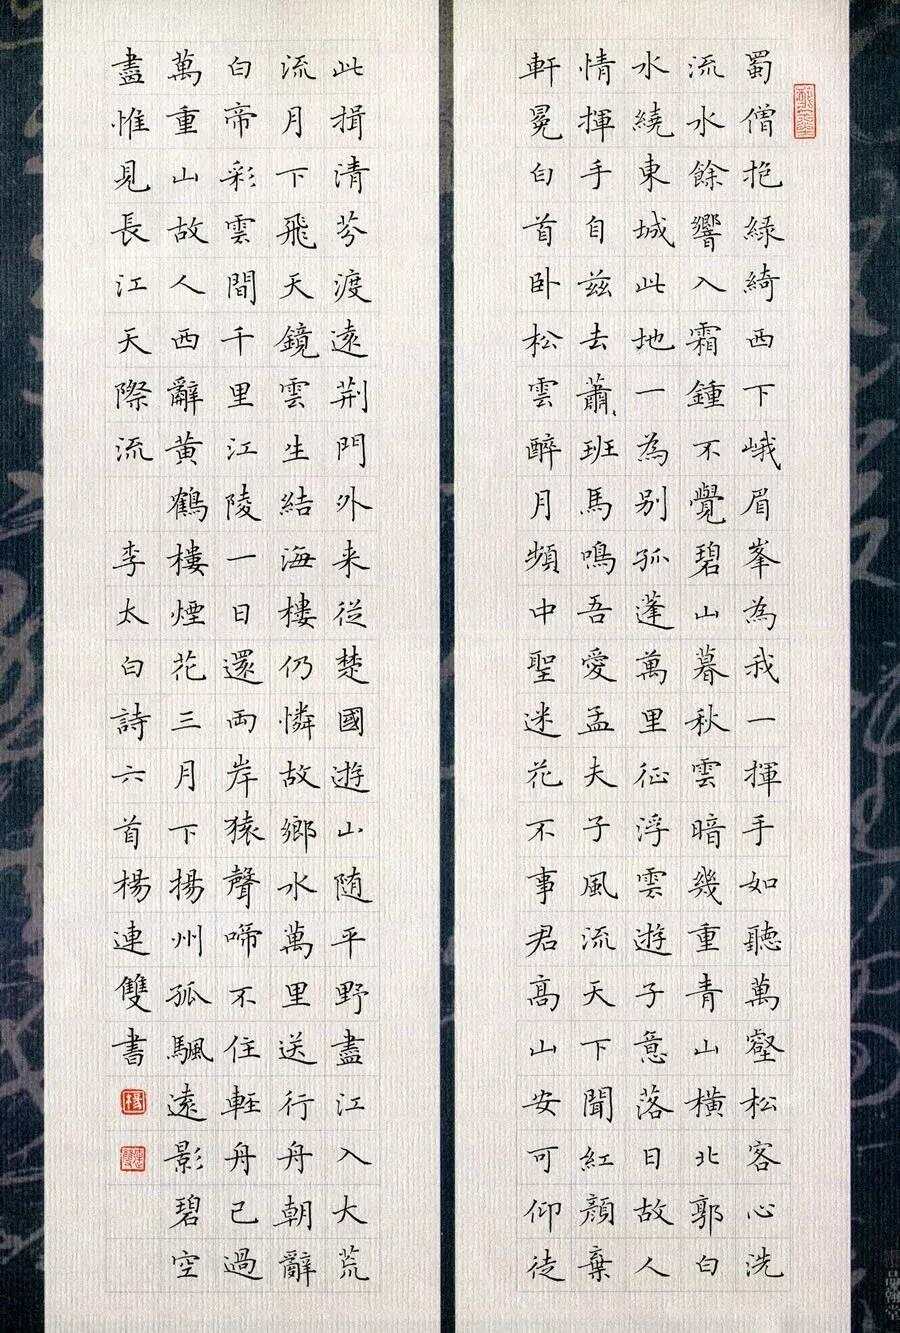 蜀僧抱綠綺西下峨眉峯為我一揮手如聽萬壑松客心洗
流水餘響入霜鍾不覺碧山暮秋雲暗幾重青山橫北郭白
水繞東城此地一為别孤蓬萬里征浮雲遊子意落日故人
情揮手自兹去蕭、班馬鳴吾愛孟夫子風流天下聞紅顏棄
軒冕白首卧松雲醉月頻中聖迷花不事君高山安可仰徒
此揖清芬渡遠荆門外来從楚國遊山随平野盡江入大荒
流月下飛天鏡雲生結海樓仍憐故鄉水萬里送行舟朝辭
白帝彩雲間千里江陵一日還兩岸猿聲啼不住輕舟已過
萬重山故人西辭黄鶴樓煙花三月下揚州孤颿遠影碧空
盡惟見長江天際流 李太白詩六首楊連雙書